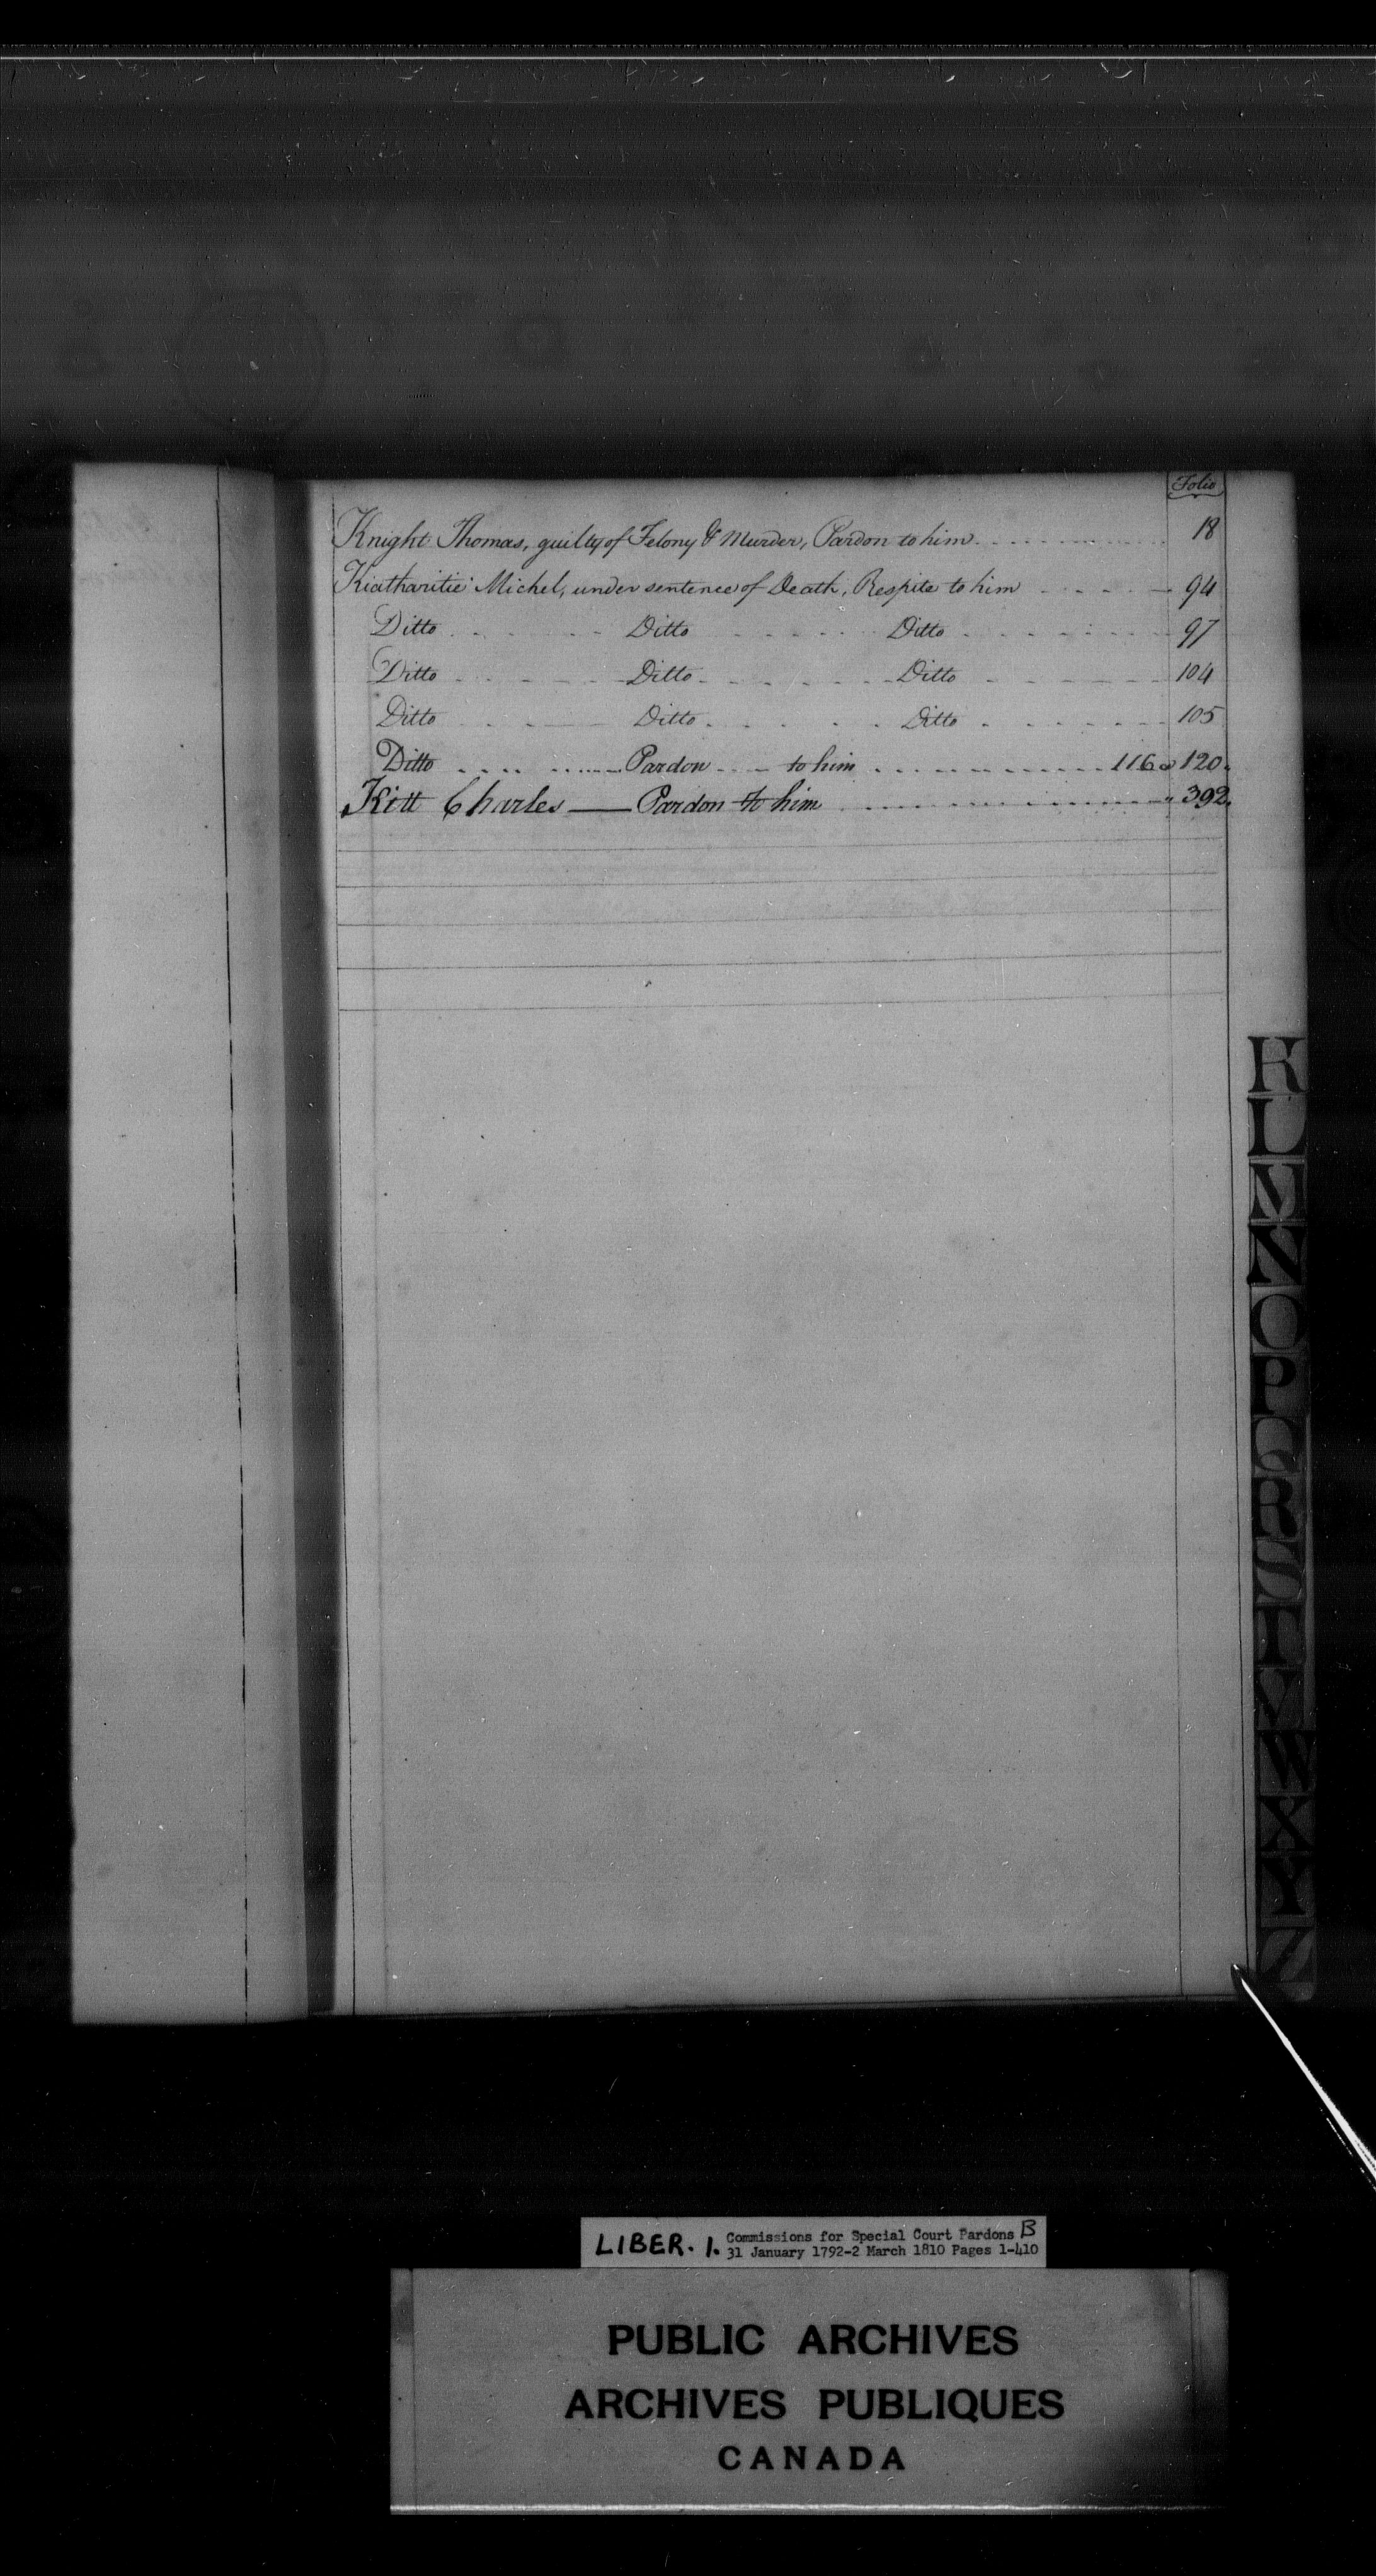 Folio
Knight Thomas, guilty of Felony & Murder, Pardon to him 18
Kiatharitie Michel, under sentence of Death, Respite to him 94
Ditto Ditto Ditto 97
Ditto Ditto Ditto 104
Ditto Ditto Ditto 105
Ditto Pardon to him 116 & 120.
Kitt Charles — Pardon to him 392.
K
L
M
N
O
P
Q
R
S
T
V
W
X
Y
Z
LIBER. 1. Commissions for Special Court Pardons B
31 January 1792-2 March 1810 Pages 1-410
PUBLIC ARCHIVES
ARCHIVES PUBLIQUES
CANADA